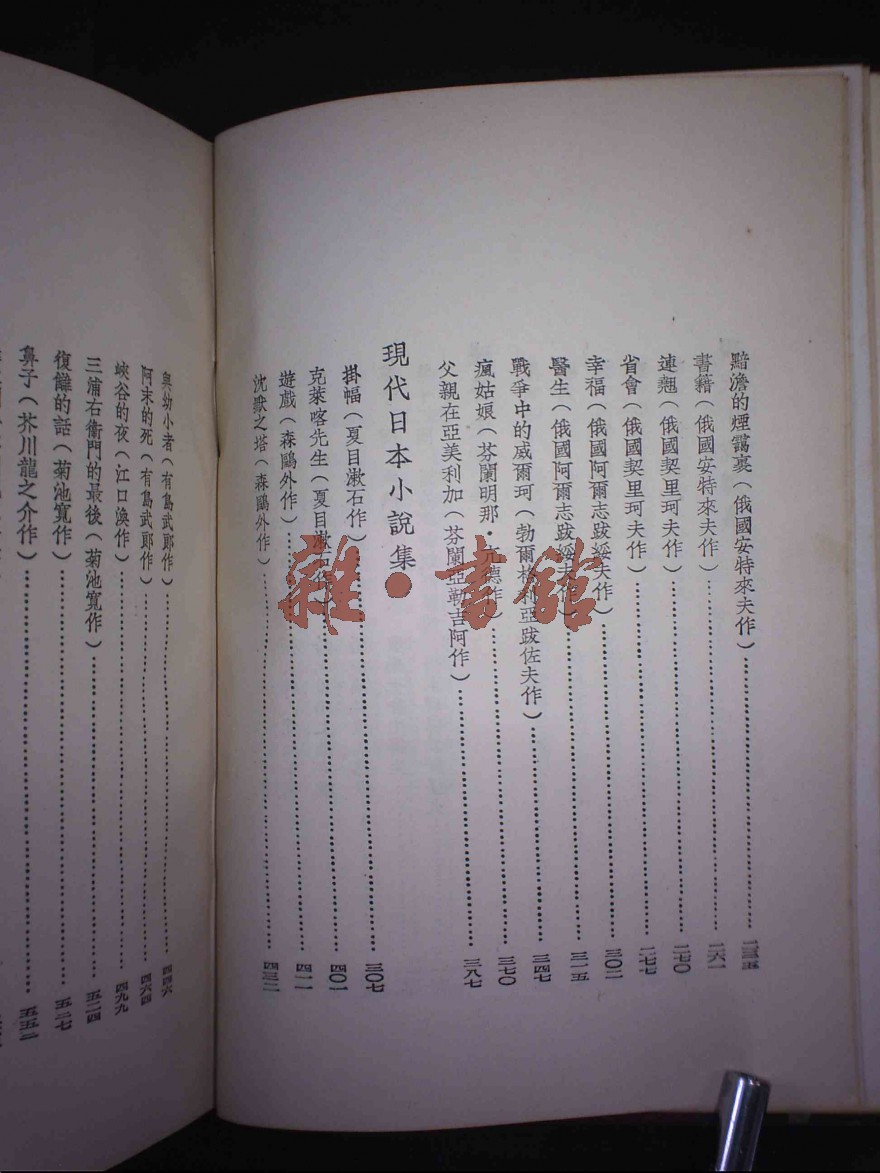 黯澹的煙靄裏（俄國安特來夫作）……二三五
書籍（俄國安特來夫作）……二六一
連翹（俄國契里珂夫作）……二七〇
省會（俄國契里珂夫作）……二七七
幸福（俄國阿爾志跋綏夫作）……三〇二
醫生（俄國阿爾志跋綏夫作）……三一五
戰爭中的威爾珂（勃爾格利亞跋佐夫作）……三四七
瘋姑娘（芬蘭明那・亢德作）……三七〇
父親在亞美利加（芬蘭亞勒吉阿作）……三八七
現代日本小說集
掛幅（夏目漱石作）……三〇七
克萊喀先生（夏目漱石作）……四〇一
遊戲（森鷗外作）……四一一
沈默之塔（森鷗外作）……四三二
與幼小者（有島武郎作）……四四六
阿末的死（有島武郎作）……四六四
峽谷的夜（江口渙作）……四九九
三浦右衞門的最後（菊池寬作）……五一四
復讎的話（菊池寬作）……五二七
鼻子（芥川龍之介作）……五五二
雜・書館